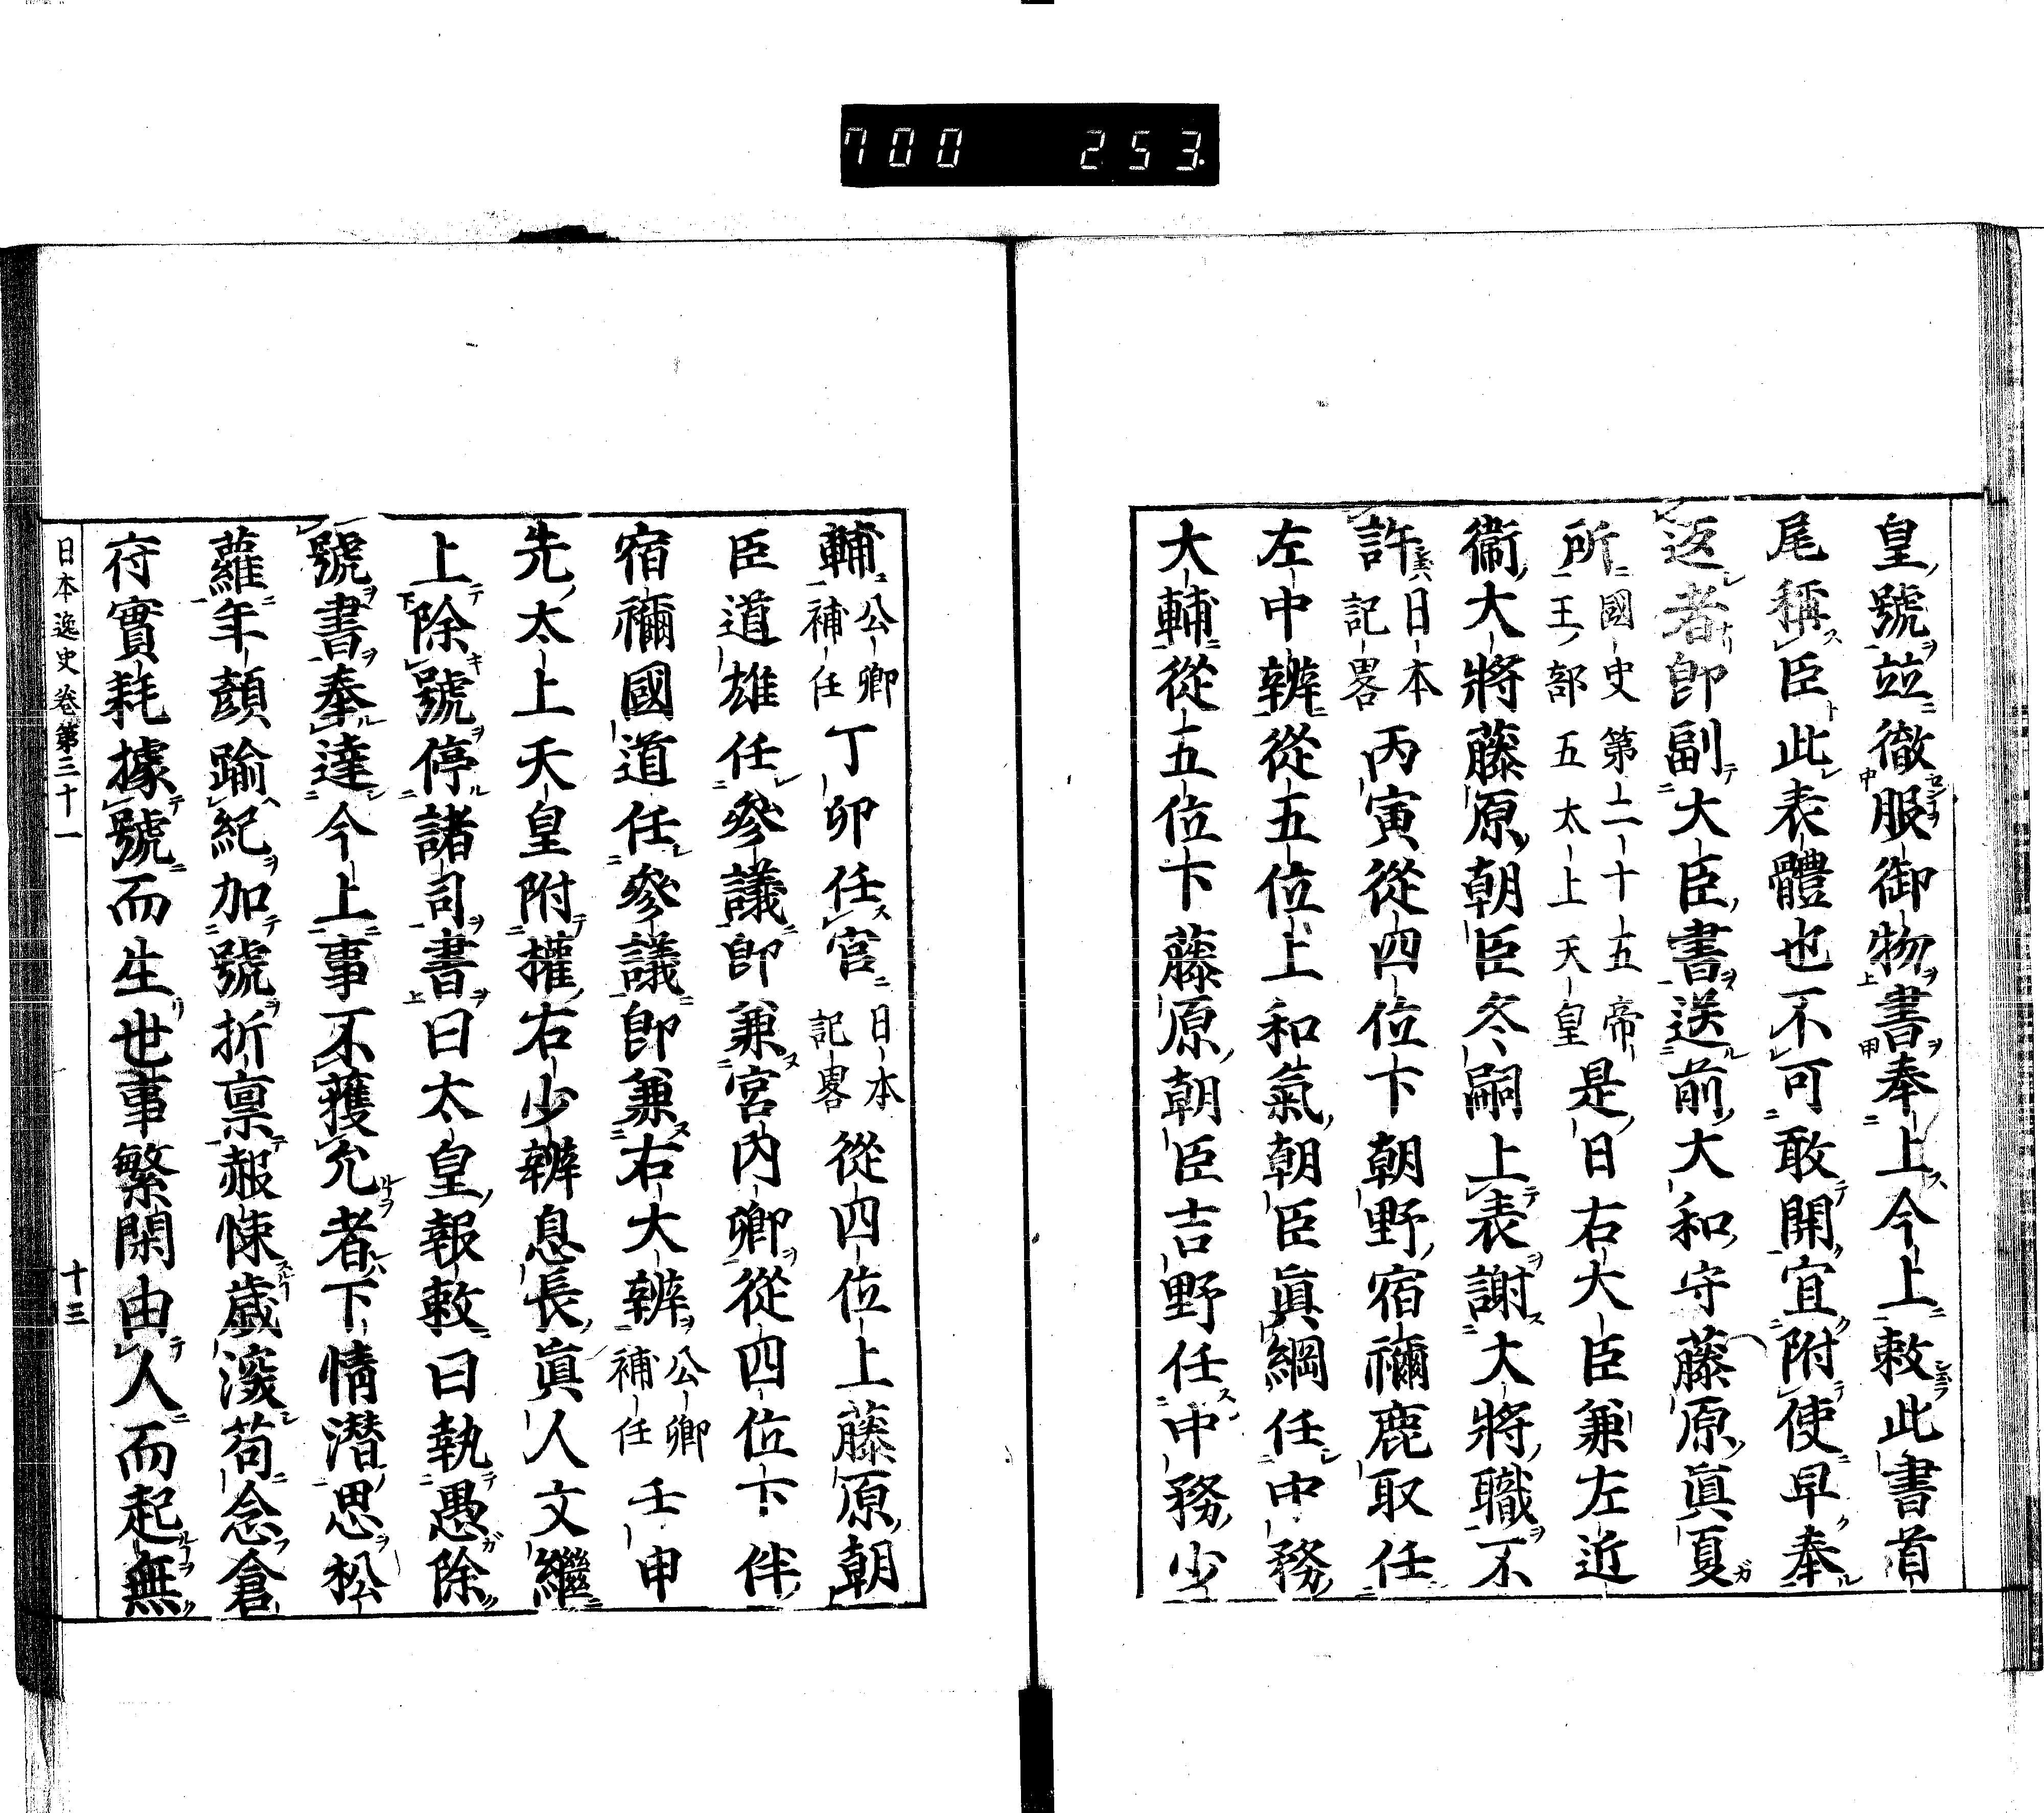 700 253.
皇號竝徹服御物書奉上今上敕此書首
尾稱臣此表體也不可敢開宜附使早奉
返者卽副大臣書送前大和守藤原眞夏
所國史第二十五帝王部五太上天皇是日右大臣兼左近
衞大將藤原朝臣冬嗣上表謝大將職不
許日本記畧丙寅從四位下朝野宿禰鹿取任
左中辨從五位上和氣朝臣眞綱任中務
大輔從五位下藤原朝臣吉野任中務少
輔公卿補任丁卯任官日本記畧從四位上藤原朝
臣道雄任參議卽兼宮內卿從四位下伴
宿禰國道任參議卽兼右大辨公卿補任壬申
先太上天皇附權右少辨息長眞人文繼
上除號停諸司書曰太皇報敕曰執愚除
號書奉達今上事不獲允者下情潛思松
蘿年顏踰紀加號折禀赧悚歲深苟念倉
府實耗據號而生世事繁閑由人而起無
日本逸史卷第三十一 十三